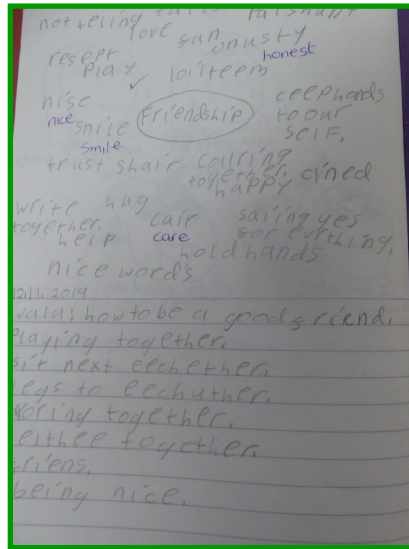 not
love fun onusty
honest
resept
play loilteem
nise
nice
snile
smile
Friendship
ceephands
to our
self.
trust shair collring
together.
happy cined
write hug
together.
help
cair
care
saiing yes
for evrthing.
hold hands
nice words
2019
wala: how to be a good friend.
Playing together.
sit next eechether.
legs to eechuther.
together.
together.
friens.
being nice.